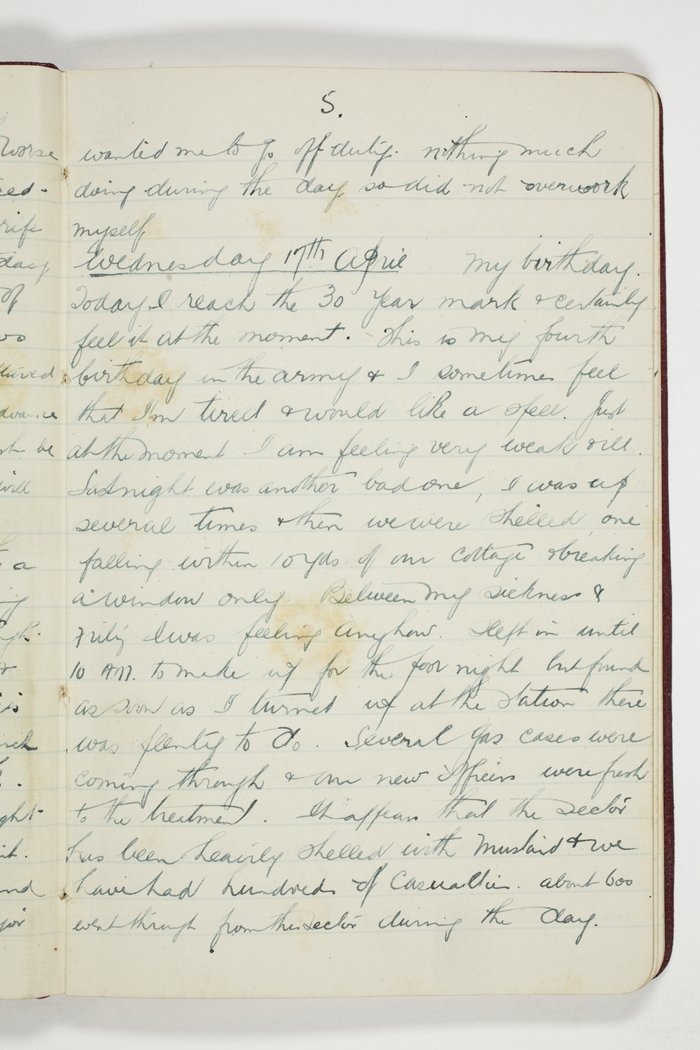 5.
wanted me to go off duty. nothing much
doing during the day so did not overwork
myself
Wednesday 17th April My birthday.
Today I reach the 30 year mark & certainly
feel it at the moment. This is my fourth
birthday in the army & I sometimes feel
that I'm tired & would like a spell. Just
at the moment I am feeling very weak & ill.
Last night was another bad one, I was up
several times & then we were shelled, one
falling within 10 yds of our cottage & breaking
a window only. Between my sickness &
Fritz I was feeling anyhow. Slept in until
10 AM. to make up for the poor night but found
as soon as I turned up at the station there
was plenty to do. Several gas cases were
coming through & our new officers were fresh
to the treatment. It appears that the sector
has been heavily shelled with Mustard & we
have had hundreds of casualties. about 600
went through from this sector during the day.
worse
rife
day
of
be
will
a
ind